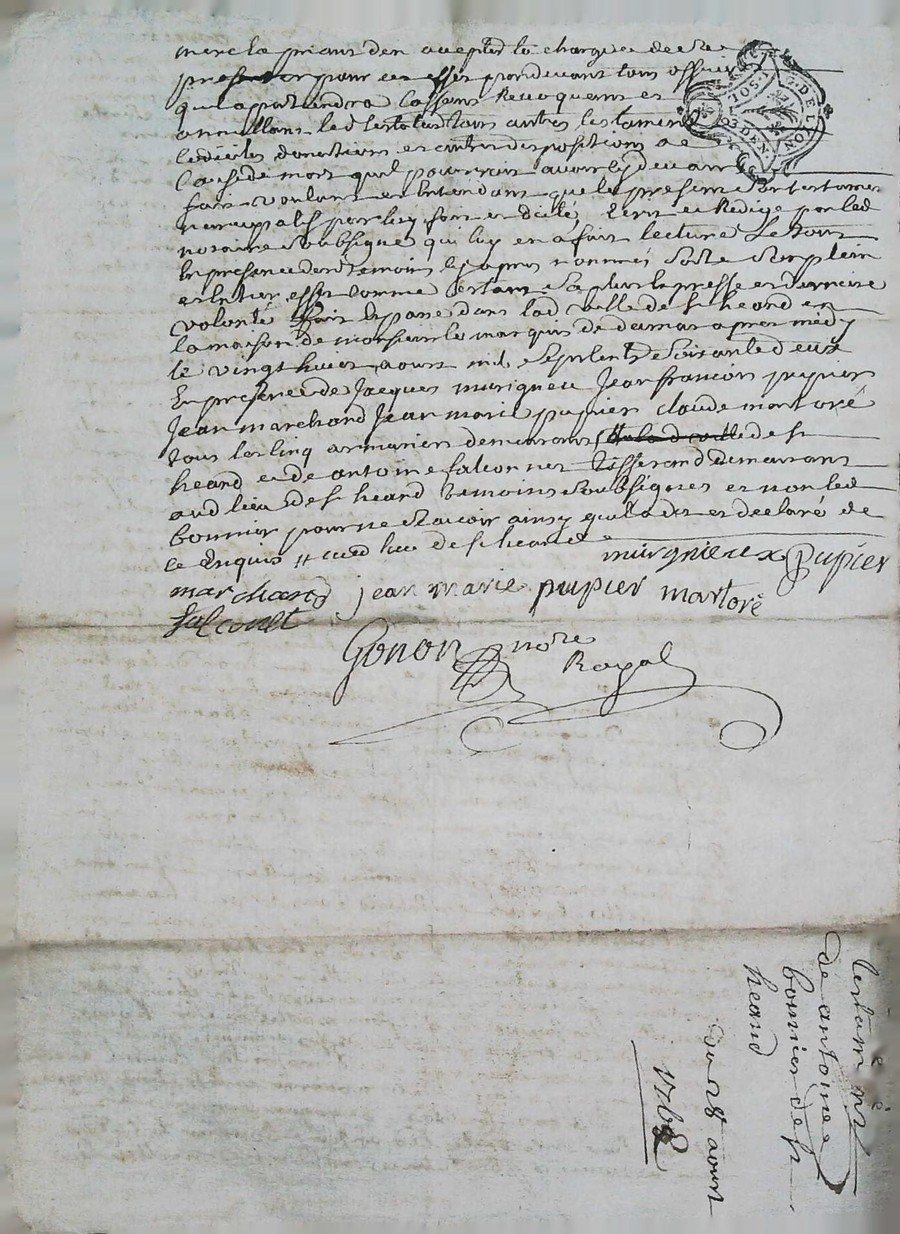 merc la priant den accepter la charge et de
pour ces effet pardevant tous officiers
quil appartiendra Cassant Revoquant et
annullant led testateur tous autres testamens
codiciles donations et autres dispositions a
Cause de mort quil pourroit avoir cy devant
fait voulant et entendant que le present soit son testament
nuncupatif par luy fait et dicté, Ecrit et Redigé par led
notaire soubsigné qui luy en a fait lecture le tout
En presence desd temoins cy apres nommés sorte son plein
et Entier effet comme Estant sa plus Expresse et derniere
volonté fait Et passé dans lad ville de st heand en
la maison de monsieur le marquis de apres midy
le vingt huit aoust mil sept cents Soixante deux
En presence de Jacques murigneu Jean francois pupier
Jean marchand Jean marie pupier claude martoré
tous les cinq armuriers demeurants de st
heand et de antoine falconnet tisserand demeurant
aud lieu de st heand temoins soubsignés et non led
bonnier pour ne scavoir ainsy quil a dit et declaré de
ce Enquis # aud lieu de st heand
murgnieux pupier
marchand jean marie pupier martoré
falconet
Gonon nore
Royal
testam
de antoine
bonnier de st
heand
du 28 aoust
1762
I. SOL.
G. DE LYON
DEN.